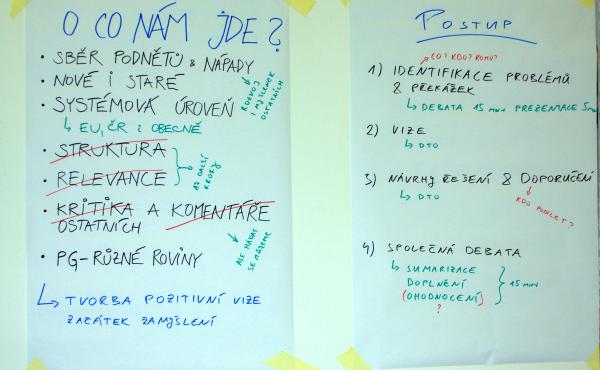 O CO NÁM JDE?
• SBĚR PODNĚTŮ & NÁPADY
• NOVÉ I STARÉ
ROZVOJ I MYŠLENEK OSTATNÍCH
• SYSTÉMOVÁ ÚROVEŇ
↳ EU, ČR i OBECNĚ
• STRUKTURA
• RELEVANCE
AŽ DALŠÍ KROKY
• KRITIKA A KOMENTÁŘE
OSTATNÍCH
ALE HÁDAT SE MŮŽEME
• PG – RŮZNÉ ROVINY
↳ TVORBA POZITIVNÍ VIZE
ZAČÁTEK ZAMYŠLENÍ
POSTUP
CO? KDO? KOMU?
1) IDENTIFIKACE PROBLÉMŮ
& PŘEKÁŽEK
↳ DEBATA 15 min PREZENTACE 5 min
2) VIZE
↳ DTO
3) NÁVRHY ŘEŠENÍ & DOPORUČENÍ
↳ DTO
4) SPOLEČNÁ DEBATA
↳ SUMARIZACE
DOPLNĚNÍ
(OHODNOCENÍ)
?
15 min